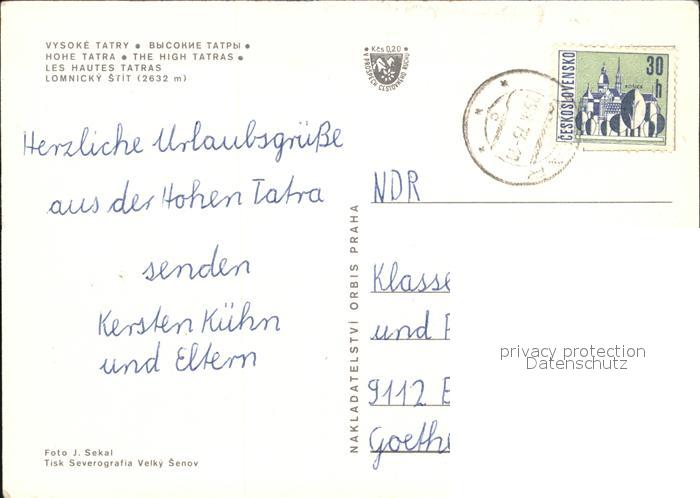 VYSOKÉ TATRY • ВЫСОКИЕ ТАТРЫ •
HOHE TATRA • THE HIGH TATRAS •
LES HAUTES TATRAS
LOMNICKÝ ŠTÍT (2632 m)
• Kčs 0,20 •
V PROSPĚCH CESTOVNÉHO RUCHU
ČESKOSLOVENSKO
30 h
KOŠICE
Herzliche Urlaubsgrüße
aus der Hohen Tatra
senden
Kersten Kühn
und Eltern
NAKLADATELSTVÍ ORBIS PRAHA
NDR
Klasse
und
9112
Goethe
privacy protection
Datenschutz
Foto J. Sekal
Tisk Severografia Velký Šenov